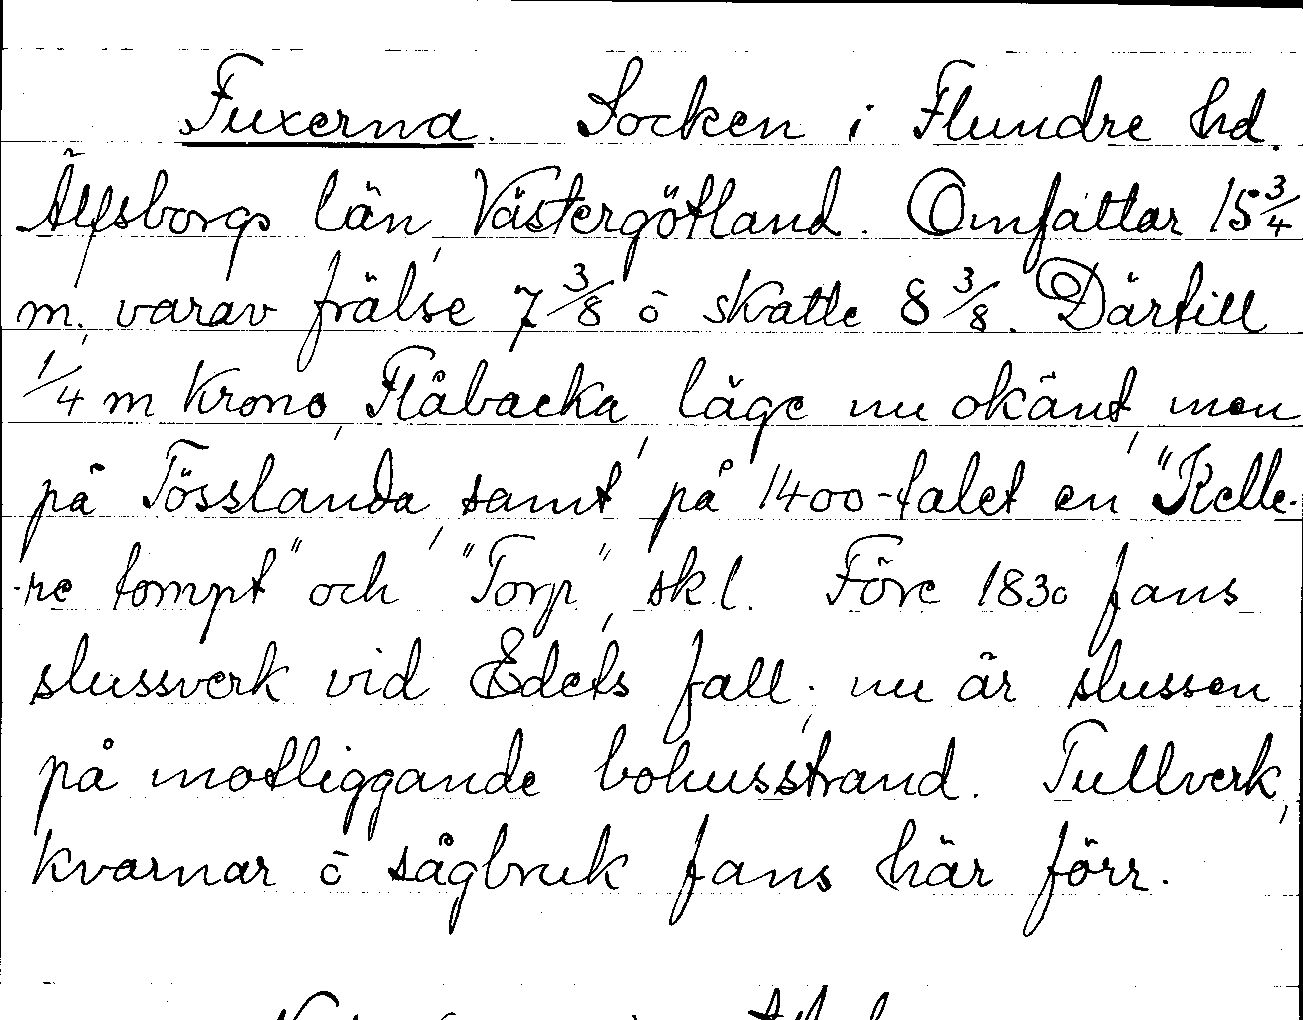 Fuxerna. Socken i Flundre hd.
Älfsborgs län, Västergötland. Omfattar 15 3/4
m. varav frälse 7 3/8 ō skatte 8 3/8. Därtill
1/4 m Krono, Flåbacka, läge nu okänt, men
på Tösslanda, samt på 1400-talet en "Kelle-
-re tompt" och "Torp", skl. Före 1830 fans
slussverk vid Edets fall; nu är slussen
på motliggande bohusstrand. Tullverk,
kvarnar ō sågbruk fans här förr.